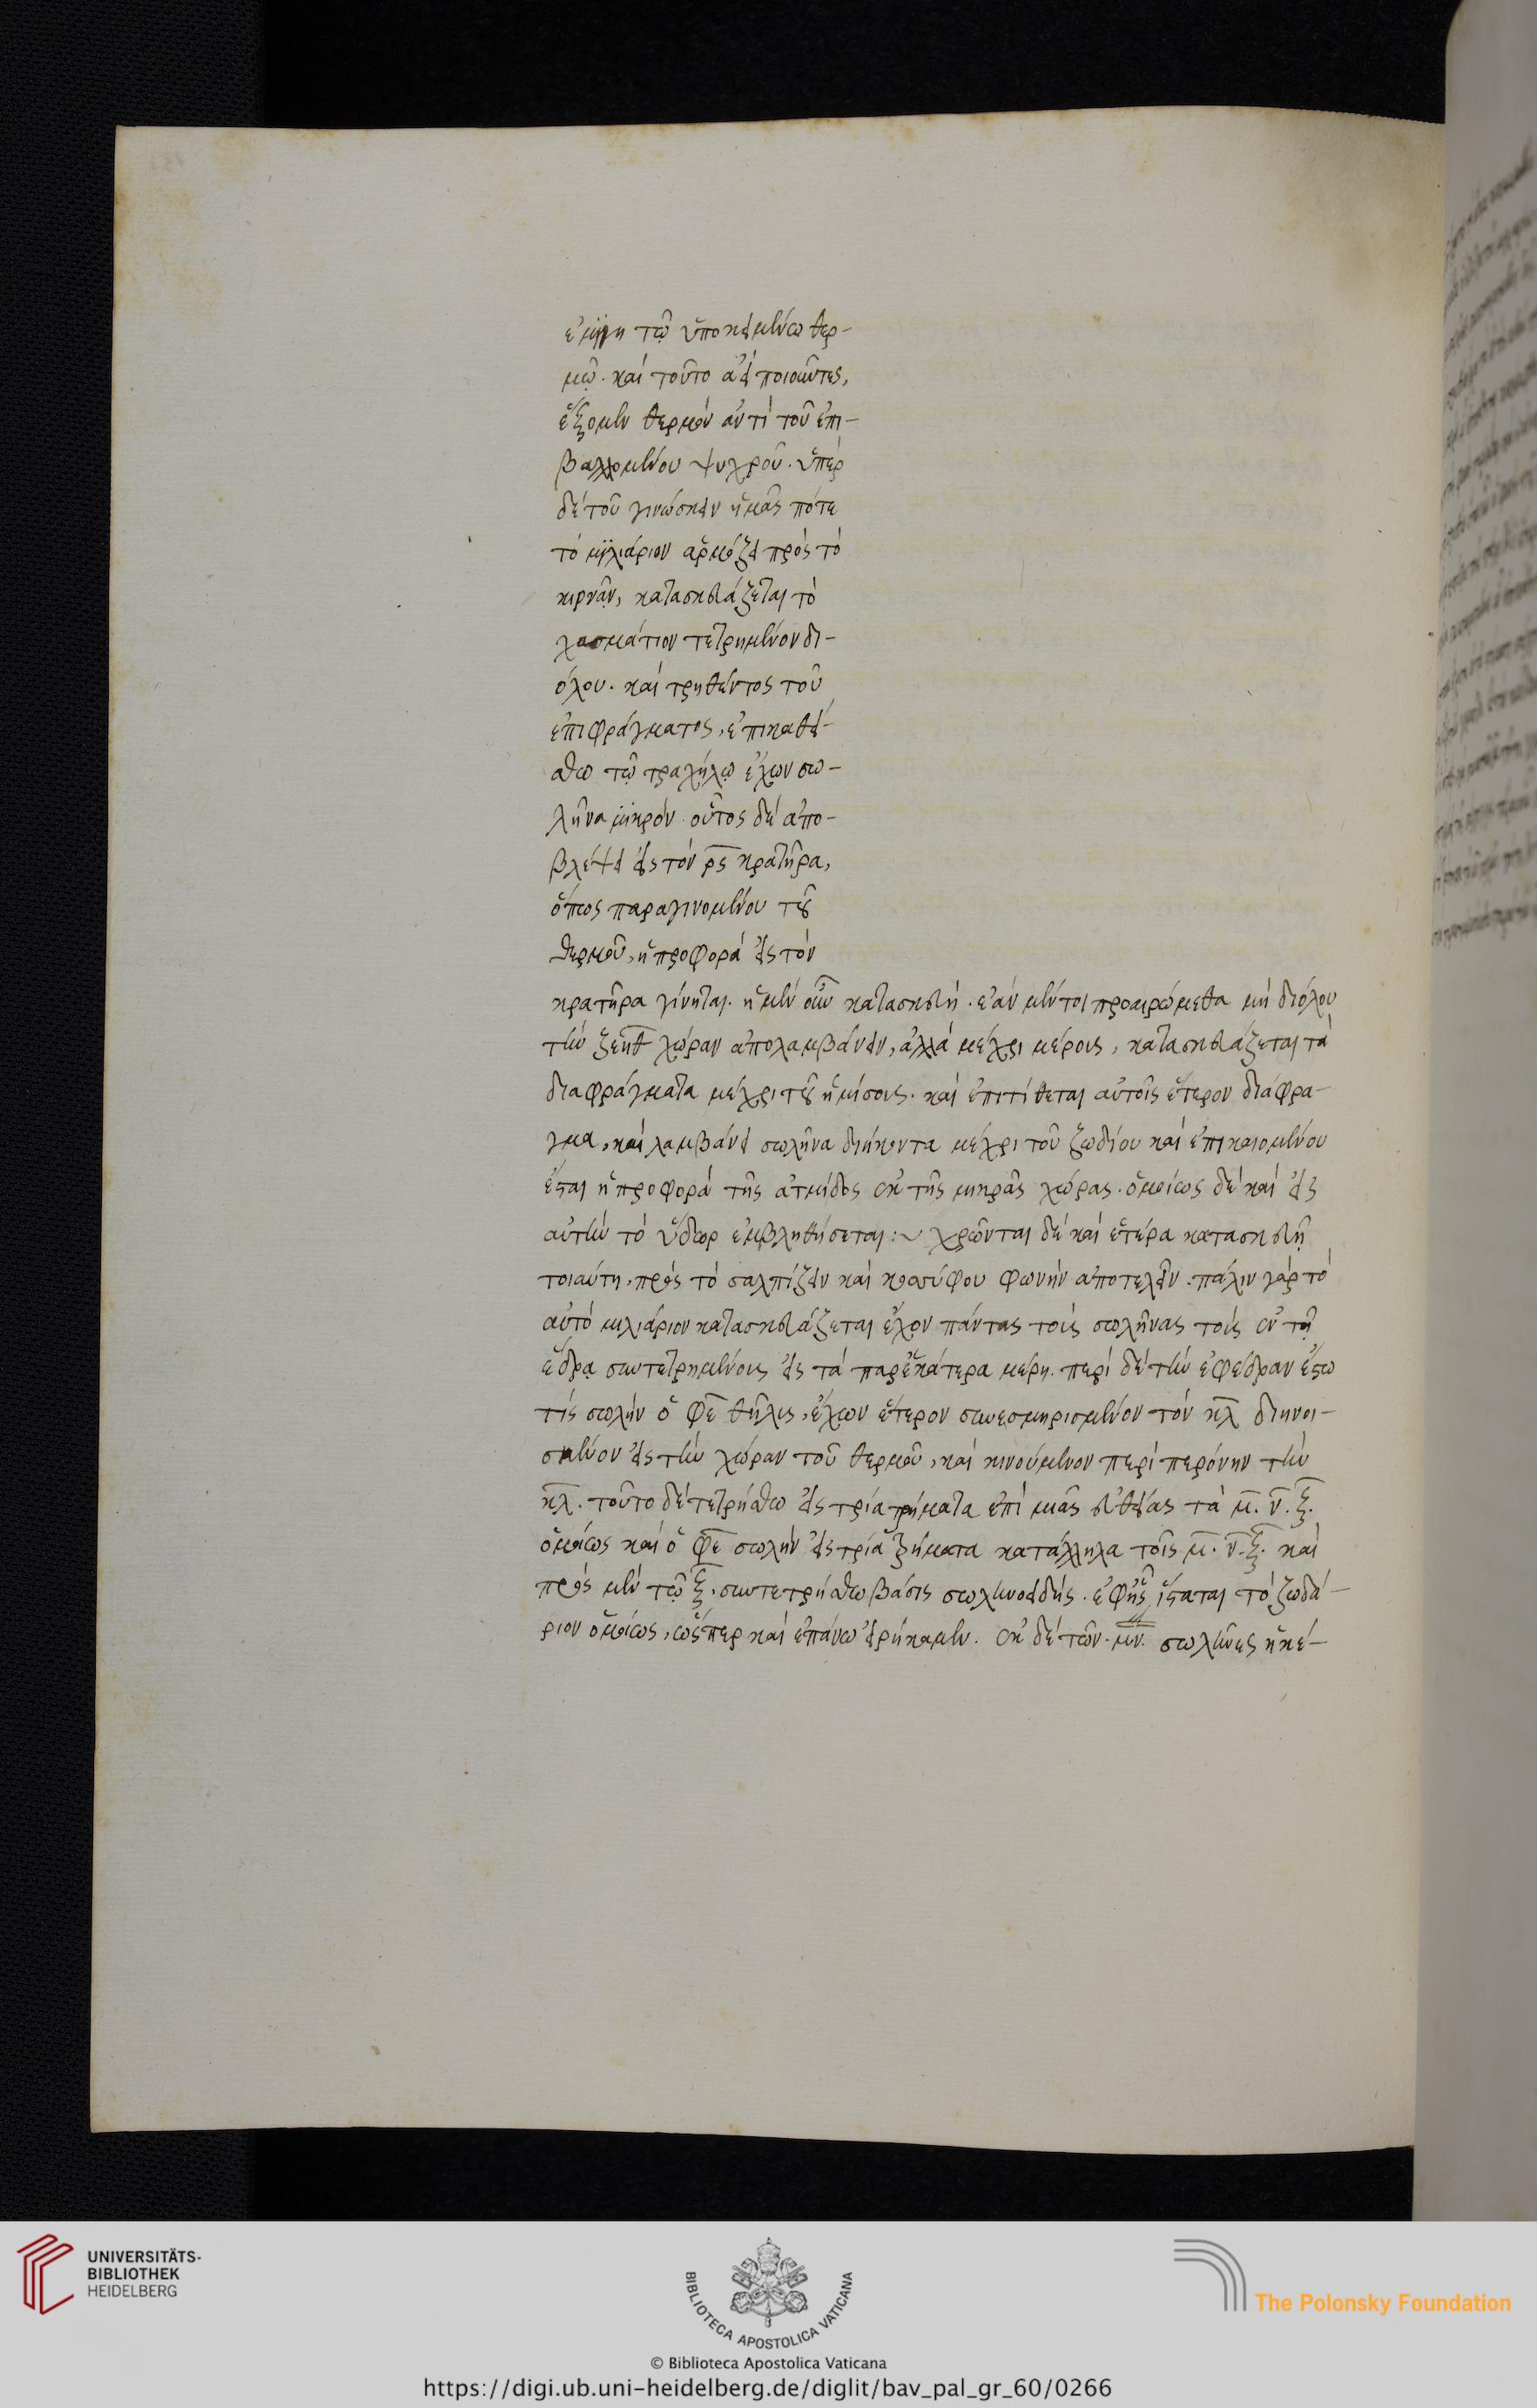 ἐμιγῆ τῷ ὑποκειμένω θερ-
μῷ. καὶ τοῦτο ἀεὶ ποιοῦντες,
ἕξομεν θερμὸν ἀντὶ τοῦ ἐπι-
βαλλομένου ψυχροῦ. ὑπὲρ
δὲ τοῦ γινώσκειν ἡμᾶς πότε
τὸ μιλιάριον ἁρμόζει πρὸς τὸ
κιρνᾶν, κατασκευάζεται τὸ
χασμάτιον τετρημένον δι-
όλου. καὶ τρηθέντος τοῦ
ἐπιφράγματος, ἐπικαθεί-
σθω τῷ τραχήλῳ ἔχων σω-
λῆνα μικρόν. οὗτος δὲ ἀπο-
βλέψει εἰς τὸν ρς κρατῆρα,
ὅπως παραγινομένου τοῦ
θερμοῦ, ἡ προφορὰ εἰς τὸν
κρατῆρα γίνηται. ἡ μὲν οὖν κατασκευή. ἐὰν μέντοι προαιρώμεθα μὴ διόλου
τὴν ξεηθ χώραν ἀπολαμβάνειν, ἀλλὰ μέχρι μέρους, κατασκευάζεται τὰ
διαφράγματα μέχρι τοῦ ἡμίσους. καὶ ἐπιτίθεται αὐτοῖς ἕτερον διάφρα-
γμα, καὶ λαμβάνει σωλῆνα διήκοντα μέχρι τοῦ ζωδίου καὶ ἐπικαιομένου
ἔσται ἡ προφορὰ τῆς ἀτμίδος ἐκ τῆς μικρᾶς χώρας. ὁμοίως δὲ καὶ εἰς
αὐτὴν τὸ ὕδωρ ἐμβληθήσεται :~ χρῶνται δὲ καὶ ἑτέρα κατασκευῇ
τοιαύτη, πρὸς τὸ σαλπίζειν καὶ κοσύφου φωνὴν ἀποτελεῖν. πάλιν γὰρ τὸ
αὐτὸ μιλιάριον κατασκευάζεται ἔχον πάντας τοὺς σωλῆνας τοὺς ἐν τῇ
ἕδρᾳ συντετρημένους εἰς τὰ παρ' ἑκάτερα μέρη. περὶ δὲ τὴν ἐφέδραν ἔστω
τὶς σωλὴν ὁ φε θῆλις, ἔχων ἕτερον συνεσμηρισμένον τὸν κλ διηνοι-
σμένον εἰς τὴν χώραν τοῦ θερμοῦ, καὶ κινούμενον περὶ περόνην τὴν
κλ. τοῦτο δὲ τετρήσθω εἰς τρία τρήματα ἐπὶ μιᾶς εὐθείας τὰ μ. ν. ξ.
ὁμοίως καὶ ὁ φε σωλὴν εἰς τρία τρήματα κατάλληλα τοῖς μ. ν. ξ. καὶ
πρὸς μὲν τῷ ξ. συντετρήσθω βάσις σωληνοειδής. ἐφ' ἧς ἵσταται τὸ ζωδά-
ριον ὁμοίως, ὥσπερ καὶ ἐπάνω εἰρήκαμεν. ἐκ δὲ τῶν. μν. σωλῆνες ἡκέ-
UNIVERSITÄTS-
BIBLIOTHEK
HEIDELBERG
BIBLIOTECA APOSTOLICA VATICANA
The Polonsky Foundation
© Biblioteca Apostolica Vaticana
https://digi.ub.uni-heidelberg.de/diglit/bav_pal_gr_60/0266